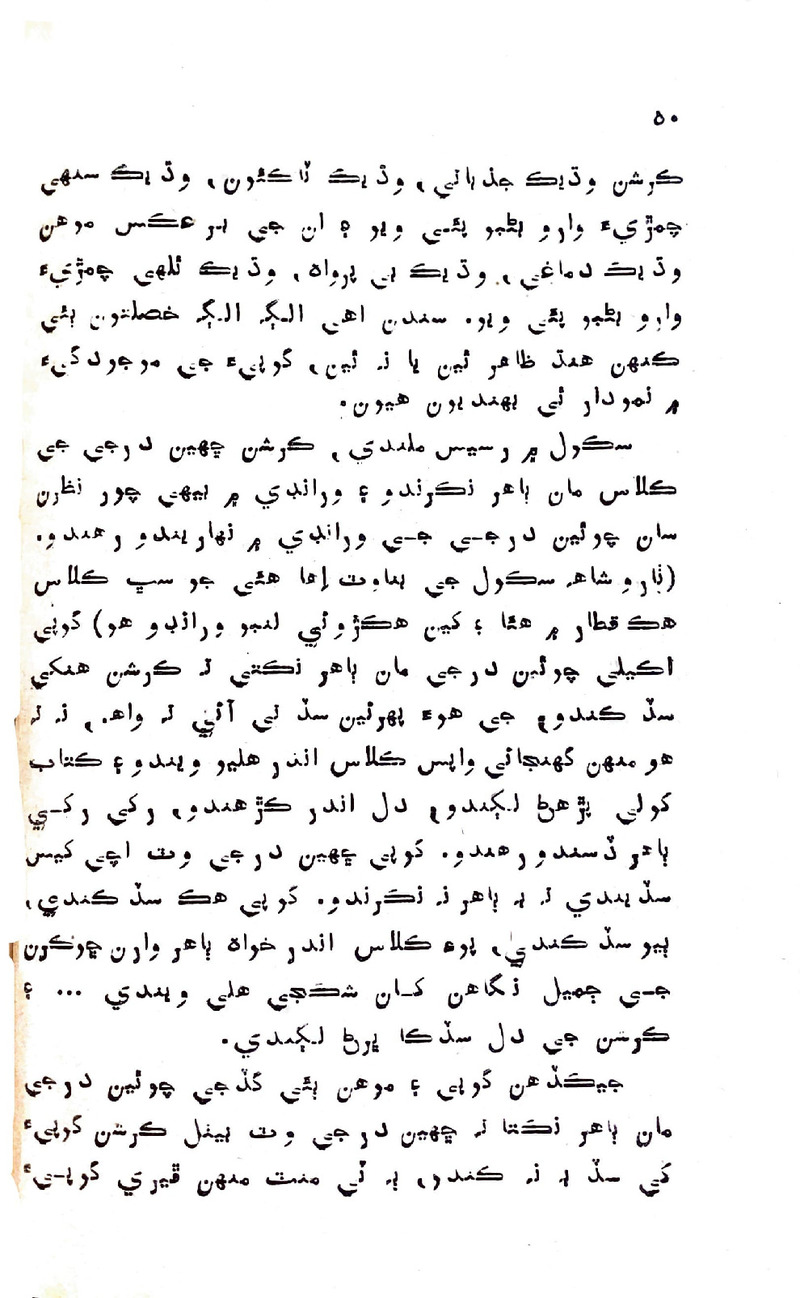 ۵۰
ڪرشن وڌيڪ جذباتي، وڌيڪ نازڪ، وڌيڪ سنهي
چمڙيءَ وارو بڻبو پئي ويو ۽ ان جي برعڪس موهن
وڌيڪ دماغي، وڌيڪ بي پرواهه، وڌيڪ ٿلهي چمڙيءَ
وارو بڻبو پئي ويو. سندن اهي الڳ الڳ خصلتون ٻئي
ڪنهن هنڌ ظاهر ٿين يا نه ٿين، گوپيءَ جي موجودگيءَ
۾ نمودار ٿي پونديون هيون.
سڪول ۾ رسيس ملندي، ڪرشن ڇهين درجي جي
ڪلاس مان ٻاهر نڪرندو ۽ ورانڊي ۾ بيهي چور نظرن
سان چوٿين درجي جي ورانڊي ۾ نهاريندو رهندو.
(تاروشاهه سڪول جي بناوت اها هئي جو سڀ ڪلاس
هڪ قطار ۾ هئا ۽ کين هڪڙوئي لنبو ورانڊو هو) گوپي
اڪيلي چوٿين درجي مان ٻاهر نڪتي ته ڪرشن هڪي
سڏ ڪندو، جي هوءَ پهرئين سڏ تي آئي ته واهه، نه ته
هو منهن گهنجائي واپس ڪلاس اندر هليو ويندو ۽ ڪتاب
کولي پڙهڻ لڳندو، دل اندر ڪڙهندو، رکي رکي
ٻاهر ڏسندو رهندو. گوپي ڇهين درجي وٽ اچي کيس
سڏيندي ته به ٻاهر نه نڪرندو. گوپي هڪ سڏ ڪندي،
ٻيو سڏ ڪندي، پوءِ ڪلاس اندر خواهه ٻاهر وارن ڇوڪرن
جي جميل نگاهن کان شڪجي هلي ويندي ... ۽
ڪرشن جي دل سڏڪا ڀرڻ لڳندي.
جيڪڏهن گوپي ۽ موهن ٻئي گڏجي چوٿين درجي
مان ٻاهر نڪتا ته ڇهين درجي وٽ بيٺل ڪرشن گوپيءَ
کي سڏ به نه ڪندو، ٻه ٽي منٽ منهن ڦيري گوپيءَ